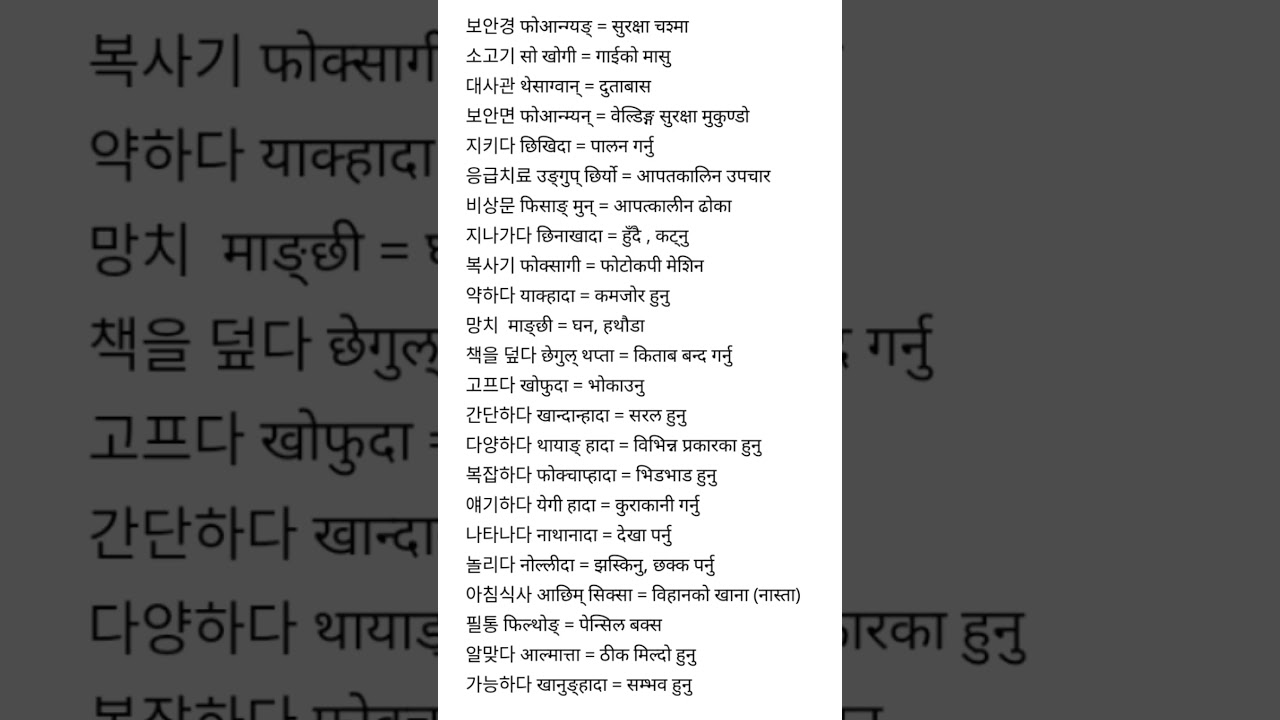 보안경 फोआन्ग्यङ् = सुरक्षा चश्मा
소고기 सो खोगी = गाईको मासु
대사관 थेसाग्वान् = दुताबास
보안면 फोआन्म्यन् = वेल्डिङ्ग सुरक्षा मुकुण्डो
지키다 छिखिदा = पालन गर्नु
응급치료 उङ्गुप् छिर्यो = आपतकालिन उपचार
비상문 फिसाङ् मुन् = आपत्कालीन ढोका
지나가다 छिनाखादा = हुँदै , कट्नु
복사기 फोक्सागी = फोटोकपी मेशिन
약하다 याक्हादा = कमजोर हुनु
망치 माङ्छी = घन, हथौडा
책을 덮다 छेगुल् थप्ता = किताब बन्द गर्नु
고프다 खोफुदा = भोकाउनु
간단하다 खान्दान्हादा = सरल हुनु
다양하다 थायाङ् हादा = विभिन्न प्रकारका हुनु
복잡하다 फोक्चाप्हादा = भिडभाड हुनु
얘기하다 येगी हादा = कुराकानी गर्नु
나타나다 नाथानादा = देखा पर्नु
놀리다 नोल्लीदा = झस्किनु, छक्क पर्नु
아침식사 आछिम् सिक्सा = विहानको खाना (नास्ता)
필통 फिल्थोङ् = पेन्सिल बक्स
알맞다 आल्मात्ता = ठीक मिल्दो हुनु
가능하다 खानुङ्हादा = सम्भव हुनु